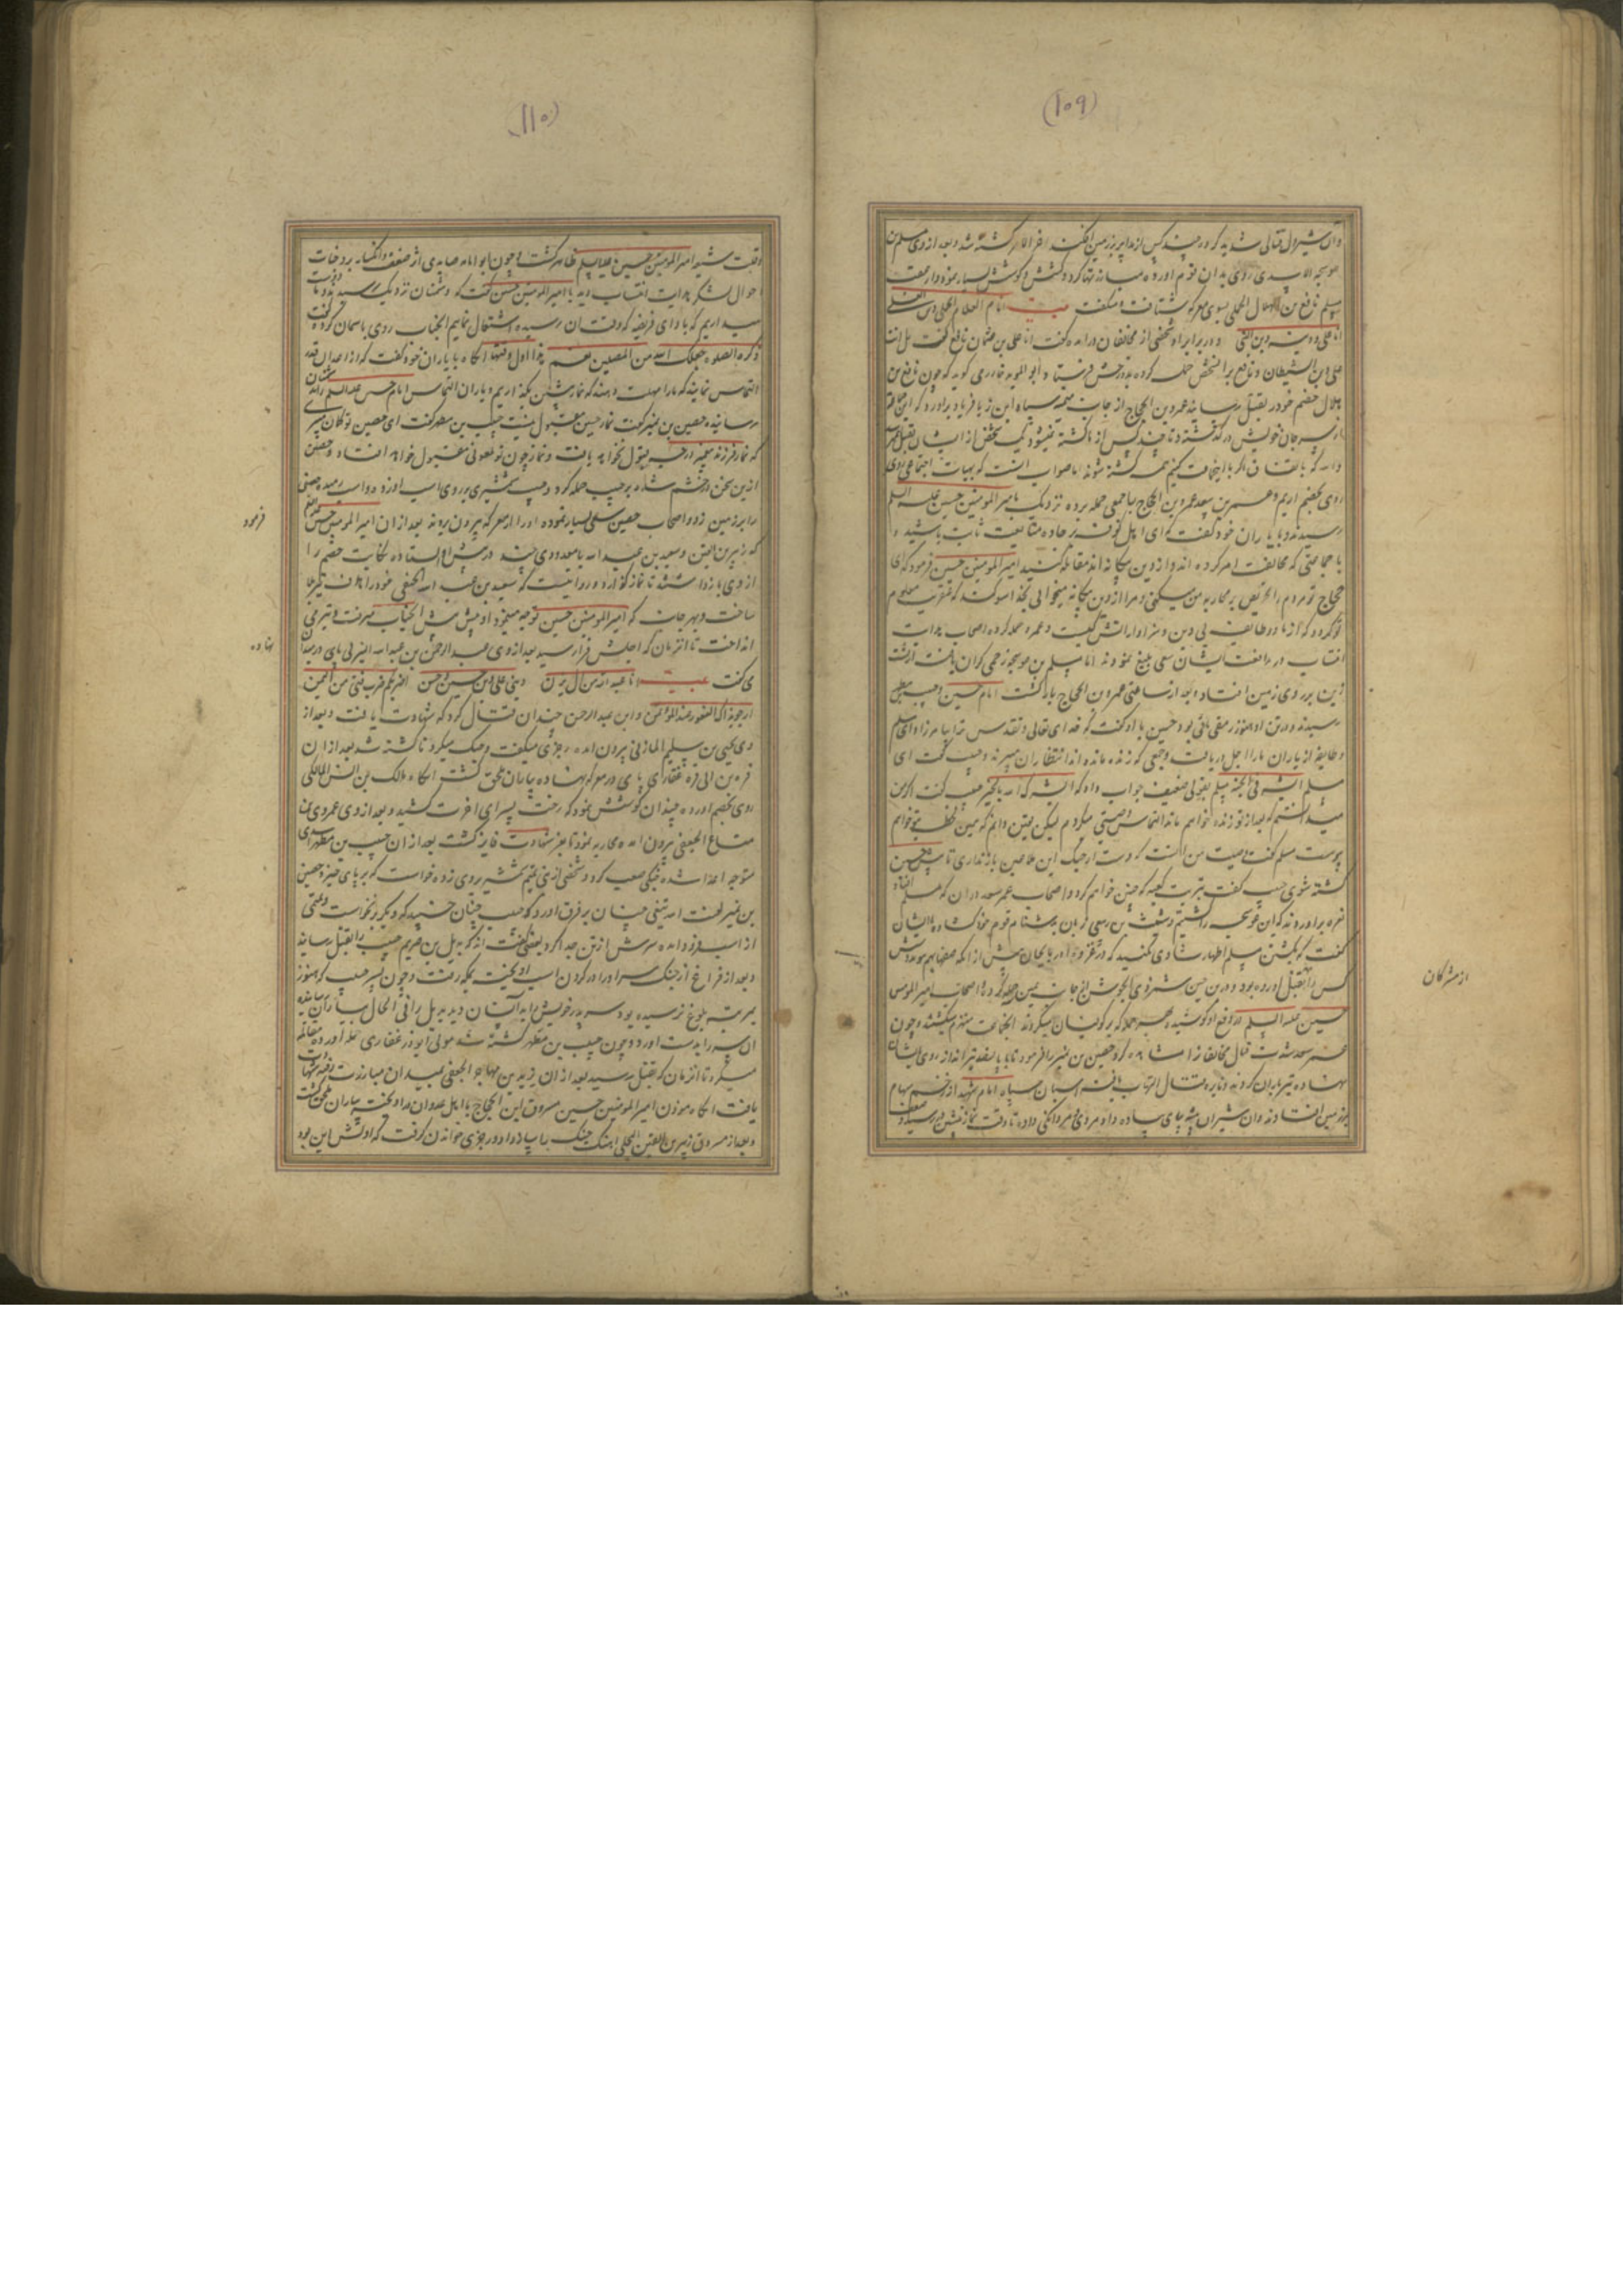 (١٠٩)
وان شیردل قتالی شدید کرد چند کس از مدابیر بر زمین افکند اخر الامر کشته شد و بعد از وی مسلم بن
عوسجه الاسدی روی بدان قوم اورده مبارزتها کرد و کشش و کوشش بسیار نمود
مسلم نافع بن الهلال البجلی بسوی معرکه شتافت و میگفت بیت انا الغلام البجلی
انا علی و دینه دین النبی و در برابر او شخصی از مخالفان درامده گفت انا علی دین عثمان نافع گفت بل انت
علی دین الشیطان و نافع بر آن شخص حمله کرده بدوزخش فرستاد و ابو الموید خوارزمی گوید که چون نافع بن
هلال خصم خود را بقتل رسانید عمرو بن الحجاج از جانب میمنه سپاه ابن زیاد فریاد براورد که این مردم
از سر جان خویش در گذشته و تا چند کس از ما کشته نمیشود یک شخص از ایشان بقتل نمیرسد
والله که باتفاق اگر با اینجماعت کنیم همه کشته شوند اما صواب انست که بهیات اجتماعی روی
روی بخصم اریم و عمر بن سعد عمرو بن الحجاج با جمعی حمله برده نزدیک بامیر المومنین حسین علیه السلم
رسیدند و با یاران خود گفت که ای اهل کوفه بر جاده متابعت ثابت باشید و
با جماعتی که مخالفت امر کرده اند و از دین بیگانه اند مقاتله کنید امیر المومنین حسین فرمود که ای
حجاج تو مردم را تحریض بر محاربه من میکنی و مرا از دین بیگانه میخوانی بخدا سوگند که عنقریب معلوم
تو گردد که از ما دو طایفه بی دین و سزاوار اتش کیست و عمرو حمله کرده اصحاب هدایت
افتساب در مدافعت ایشان سعی بلیغ نمودند اما مسلم بن عوسجه زخمی گران یافت از پشت
زین بر روی زمین افتاد و بعد از ساعتی عمرو بن الحجاج بازگشت امام حسین و حبیب بن مظهر
رسیدند و در تن او هنوز رمقی باقی بود و حسین با او گفت که خدای تعالی و تقدس ترا بیامرزاد ای مسلم
و طایفه از یاران ما را اجل دریافت و جمعی که زنده مانده اند انتظار ان میبرند و حبیب گفت ای
مسلم ابشر فی الجنة مسلم بقولی ضعیف جواب داد که ابشرک الله بالخیر حبیب گفت اگر من
میدانستم که بعد از تو زنده خواهم ماند التماس وصیتی میکردم لیکن یقین دانم که همین لحظه بتو خواهم
پیوست مسلم گفت وصیت من انست که دست از جنک این ملاعین باز نداری تا پیش حسین
کشته شوی حبیب گفت برب کعبه که چنین خواهم کرد و اصحاب عمر سعد در ان که مسلم افتاد
نعره براوردند که ابن عوسجه را کشتیم و شبث بن ربعی زبان بدشنام قوم خود گشاده با ایشان
گفت که بکشتن مسلم اظهار شادی میکنید که در غزوه اذربایجان پیش از انکه صفها بهم پیوندد شش
کس را بقتل اورده بود و درین حین شمر ذی الجوشن از جانب یمین حمله کرد و اصحاب امیر المومنین
حسین علیه السلم در دفع او کوشیدند و بهر جمله که بر کوفیان میکردند انجماعت منهزم میگشتند و چون
عمر سعد شدت قتال مخالفانرا مشاهده کرد حصین بن نمیر را فرمود تا با پانصد تیر انداز روی بایشان
نهاده تیر باران کردند و نایره قتال التهاب یافته اسبان سپاه امام شهید از زخم سهام
بر زمین افتادند و ان شیران بیشه بپای پیاده داد مردی و مردانگی دادند تا وقت نماز پیشین در رسید
از مشرکان
(١١٠)
امیر المومنین حسین علیه السلم ظاهر گشت و چون ابو امامه صایدی اثر ضعف و انکسار بر وجنات
احوال لشکر هدایت انتساب دید با امیر المومنین حسین گفت که دشمنان نزدیک رسیدند و ما
میداریم که بادای فریضه که وقت ان رسیده اشتغال نمایم انجناب روی باسمان کرده گفت
ذکرت الصلوه جعلک الله من المصلین نعم هذا اول وقتها انگاه با یاران خود گفت که از اعدا
التماس نمایند که ما را مهلت دهند که نماز پیشین بگذاریم و یاران التماس امام حسین علیه السلم
رسانیدند حصین بن نمیر گفت نماز حسین مقبول نیست حبیب بن مظهر گفت ای حصین تو گمان میبری
که نماز فرزند پیغمبر ارجمند قبول نخواهد یافت و نماز چون تو ملعونی مقبول خواهد افتاد و حصین
ازین سخن در خشم شده بر حبیب حمله کرد و حبیب شمشیری بر روی اسب او زد و اسب رمید حصین
را بر زمین زد و اصحاب حصین سعی بسیار نموده او را از معرکه بیرون بردند بعد از ان امیر المومنین حسین
که زهیر بن القین و سعید بن عبد الله با معدودی چند در پیش او ایستاده نکایت خصم را
از وی باز داشتند تا نماز گذارد و روایتست که سعید بن عبد الله الحنفی خود را هدف تیر بلا
ساخت و بهر جانب که امیر المومنین حسین توجه مینمود او پیش پیش انجناب میرفت و تیر می
انداخت تا انزمان که اجلش فرا رسید بعد از وی عبد الرحمن بن عبد الله الیزنی پای در میدان
می گفت بیت انا عبد الله من ال یزن دینی علی دین حسین و حسن اضربکم ضرب فتی من الیمن
ارجو بذاک الفوز عند المؤتمن و ابن عبد الرحمن چندان قتال کرد که شهادت یافت و بعد از
وی یحیی بن سلیم المازنی بیرون امده رجزی میگفت و جنک میکرد تا کشته شد بعد از ان
قره بن ابی قره غفاری پای در معرکه نهاده بیاران ملحق گشت انگاه مالک بن انس المالکی
روی بخصم اورده چندان کوشش نمود که رخت بسرای اخرت کشید و بعد از وی عمرو بن
مطاع الجعفی بیرون امده محاربه نمود تا بعز شهادت فایز گشت بعد از ان حبیب بن مظهر
متوجه اعدا شده جنگی صعب کرد و شخصی از بنی تمیم شمشیر بروی زده خواست که بر پای خیزد حصین
بن نمیر لعنت الله تیغی چنان بر فرق او زد که حبیب چنان خسپید که دیگر بر نخواست
از اسب فرود امده سرش از تن جدا کرد و بعضی گفته اند که بدیل بن صریم حبیب را بقتل رسانید
و بعد از فراغ از جنک سر او را در گردن اسب اویخت بمکه رفت و چون پسر حبیب که هنوز
بمرتبه بلوغ نرسیده بود سر پدر خویش بدانسان دید بدیل را فی الحال
ان سر را بدست اورد و چون حبیب بن مظهر کشته شد مولی ابوذر غفاری حمله اورده مقاتله
میکرد تا انزمان که بقتل رسید بعد از ان یزید بن مهاجر الجعفی بمیدان مبارزت رفته شهادت
یافت انگاه موذن امیر المومنین حسین مسروق ابن الحجاج با اهل عدوان در اویخته بیاران ملحق گشت
و بعد از مسروق زهیر بن القین البجلی اهنگ جنک با سپاه کرد و رجزی خواندن گرفت که اولش این بود
فرمود
نهاده